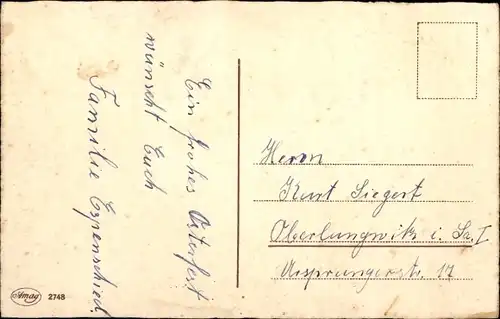 Ein frohes Osterfest
wünscht Euch
Familie Espenschied.
Herrn
Kurt Siegert
Oberlungwitz i. Sa. I
Ursprungerstr. 17
Amag 2748